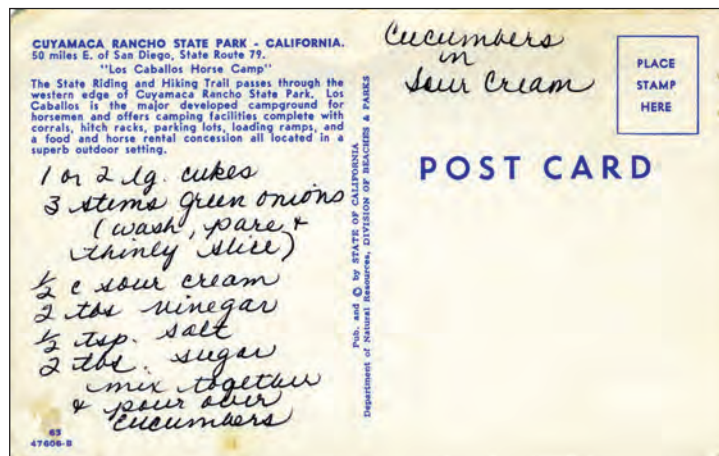 CUYAMACA RANCHO STATE PARK - CALIFORNIA.
50 miles E. of San Diego, State Route 79.
"Los Caballos Horse Camp"
The State Riding and Hiking Trail passes through the
western edge of Cuyamaca Rancho State Park. Los
Caballos is the major developed campground for
horsemen and offers camping facilities complete with
corrals, hitch racks, parking lots, loading ramps, and
a food and horse rental concession all located in a
superb outdoor setting.
1 or 2 lg. cukes
3 stems green onions
(wash, pare &
thinly slice)
½ c sour cream
2 tbs vinegar
½ tsp. salt
2 tbs. sugar
mix together
& pour over
cucumbers
63
47606-B
Pub. and © by STATE OF CALIFORNIA
Department of Natural Resources, DIVISION OF BEACHES & PARKS
Cucumbers
in
Sour Cream
PLACE
STAMP
HERE
POST CARD